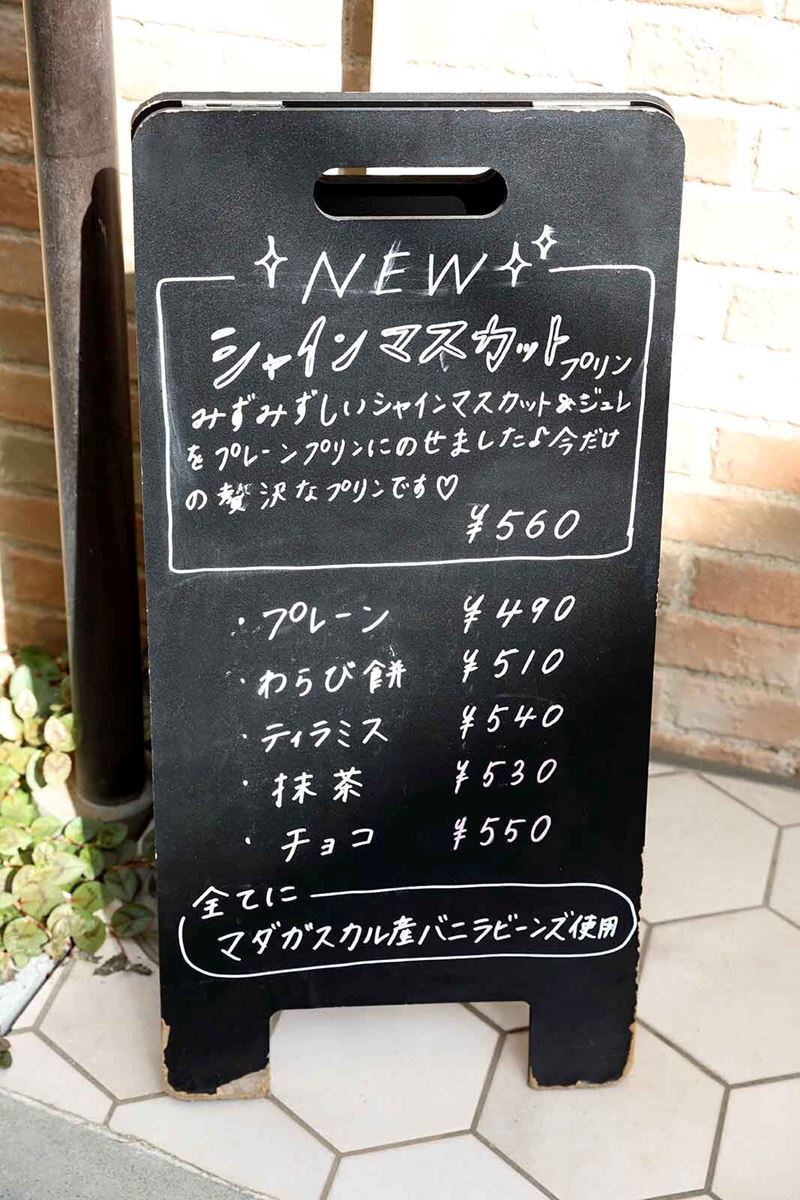 NEW
シャインマスカットプリン
みずみずしいシャインマスカット&ジュレ
をプレーンプリンにのせました♪今だけ
の贅沢なプリンです♡
¥560
・プレーン ¥490
・わらび餅 ¥510
・ティラミス ¥540
・抹茶 ¥530
・チョコ ¥550
全てに
マダガスカル産バニラビーンズ使用